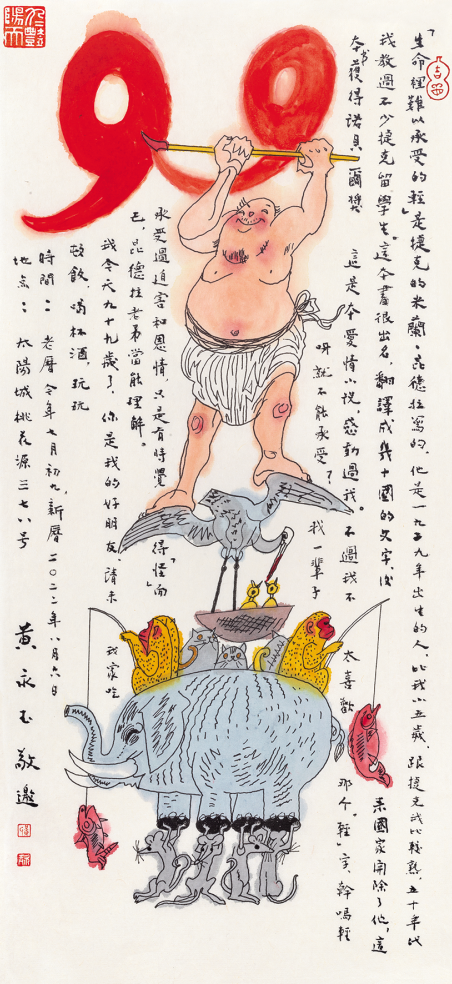 99
「生命裡難以承受的輕」是捷克的米蘭·昆德拉寫的。他是一九二九年出生的人，比我小五歲。跟捷克我比較熟，五十年代
我教過不少捷克留學生。這本書很出名，翻譯成幾十國的文字，後來國家開除了他，這
本书獲得諾貝爾獎 這是本愛情小說，感動過我。不過我不太喜歡那个「輕」字，幹嗎輕
呀就不能承受？我一輩子
承受過迫害和恩情，只是有時覺「得怪」而
已，昆德拉老弟當能理解。
我今天九十九歲了，你是我的好朋友，請来我家吃
頓飯，喝杯酒，玩玩
時間：老曆今年七月初九，新曆二〇二二年八月六日
地点：太陽城桃花源三七八号
黄永玉敬邀